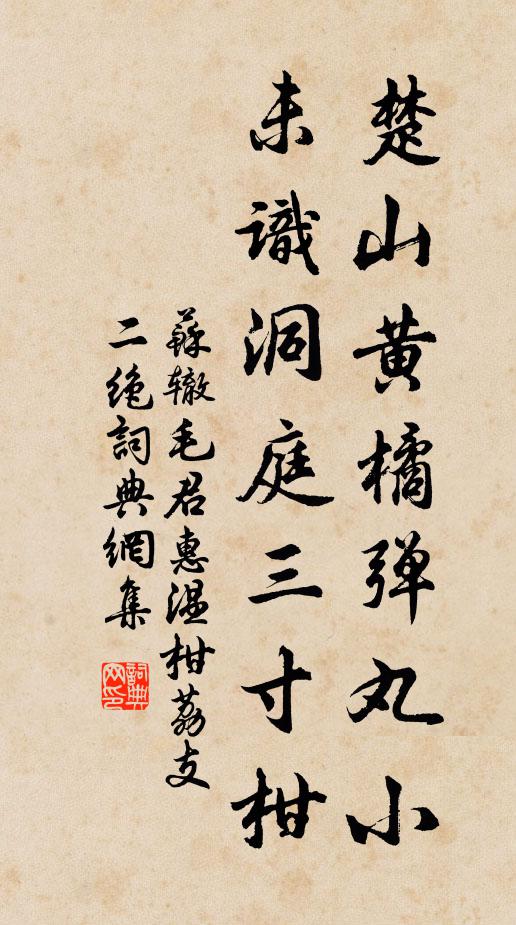 楚山黄橘弹丸小
未識洞庭三寸柑
蘇辙毛君惠温柑荔支
二绝詞典網集
詞典網印